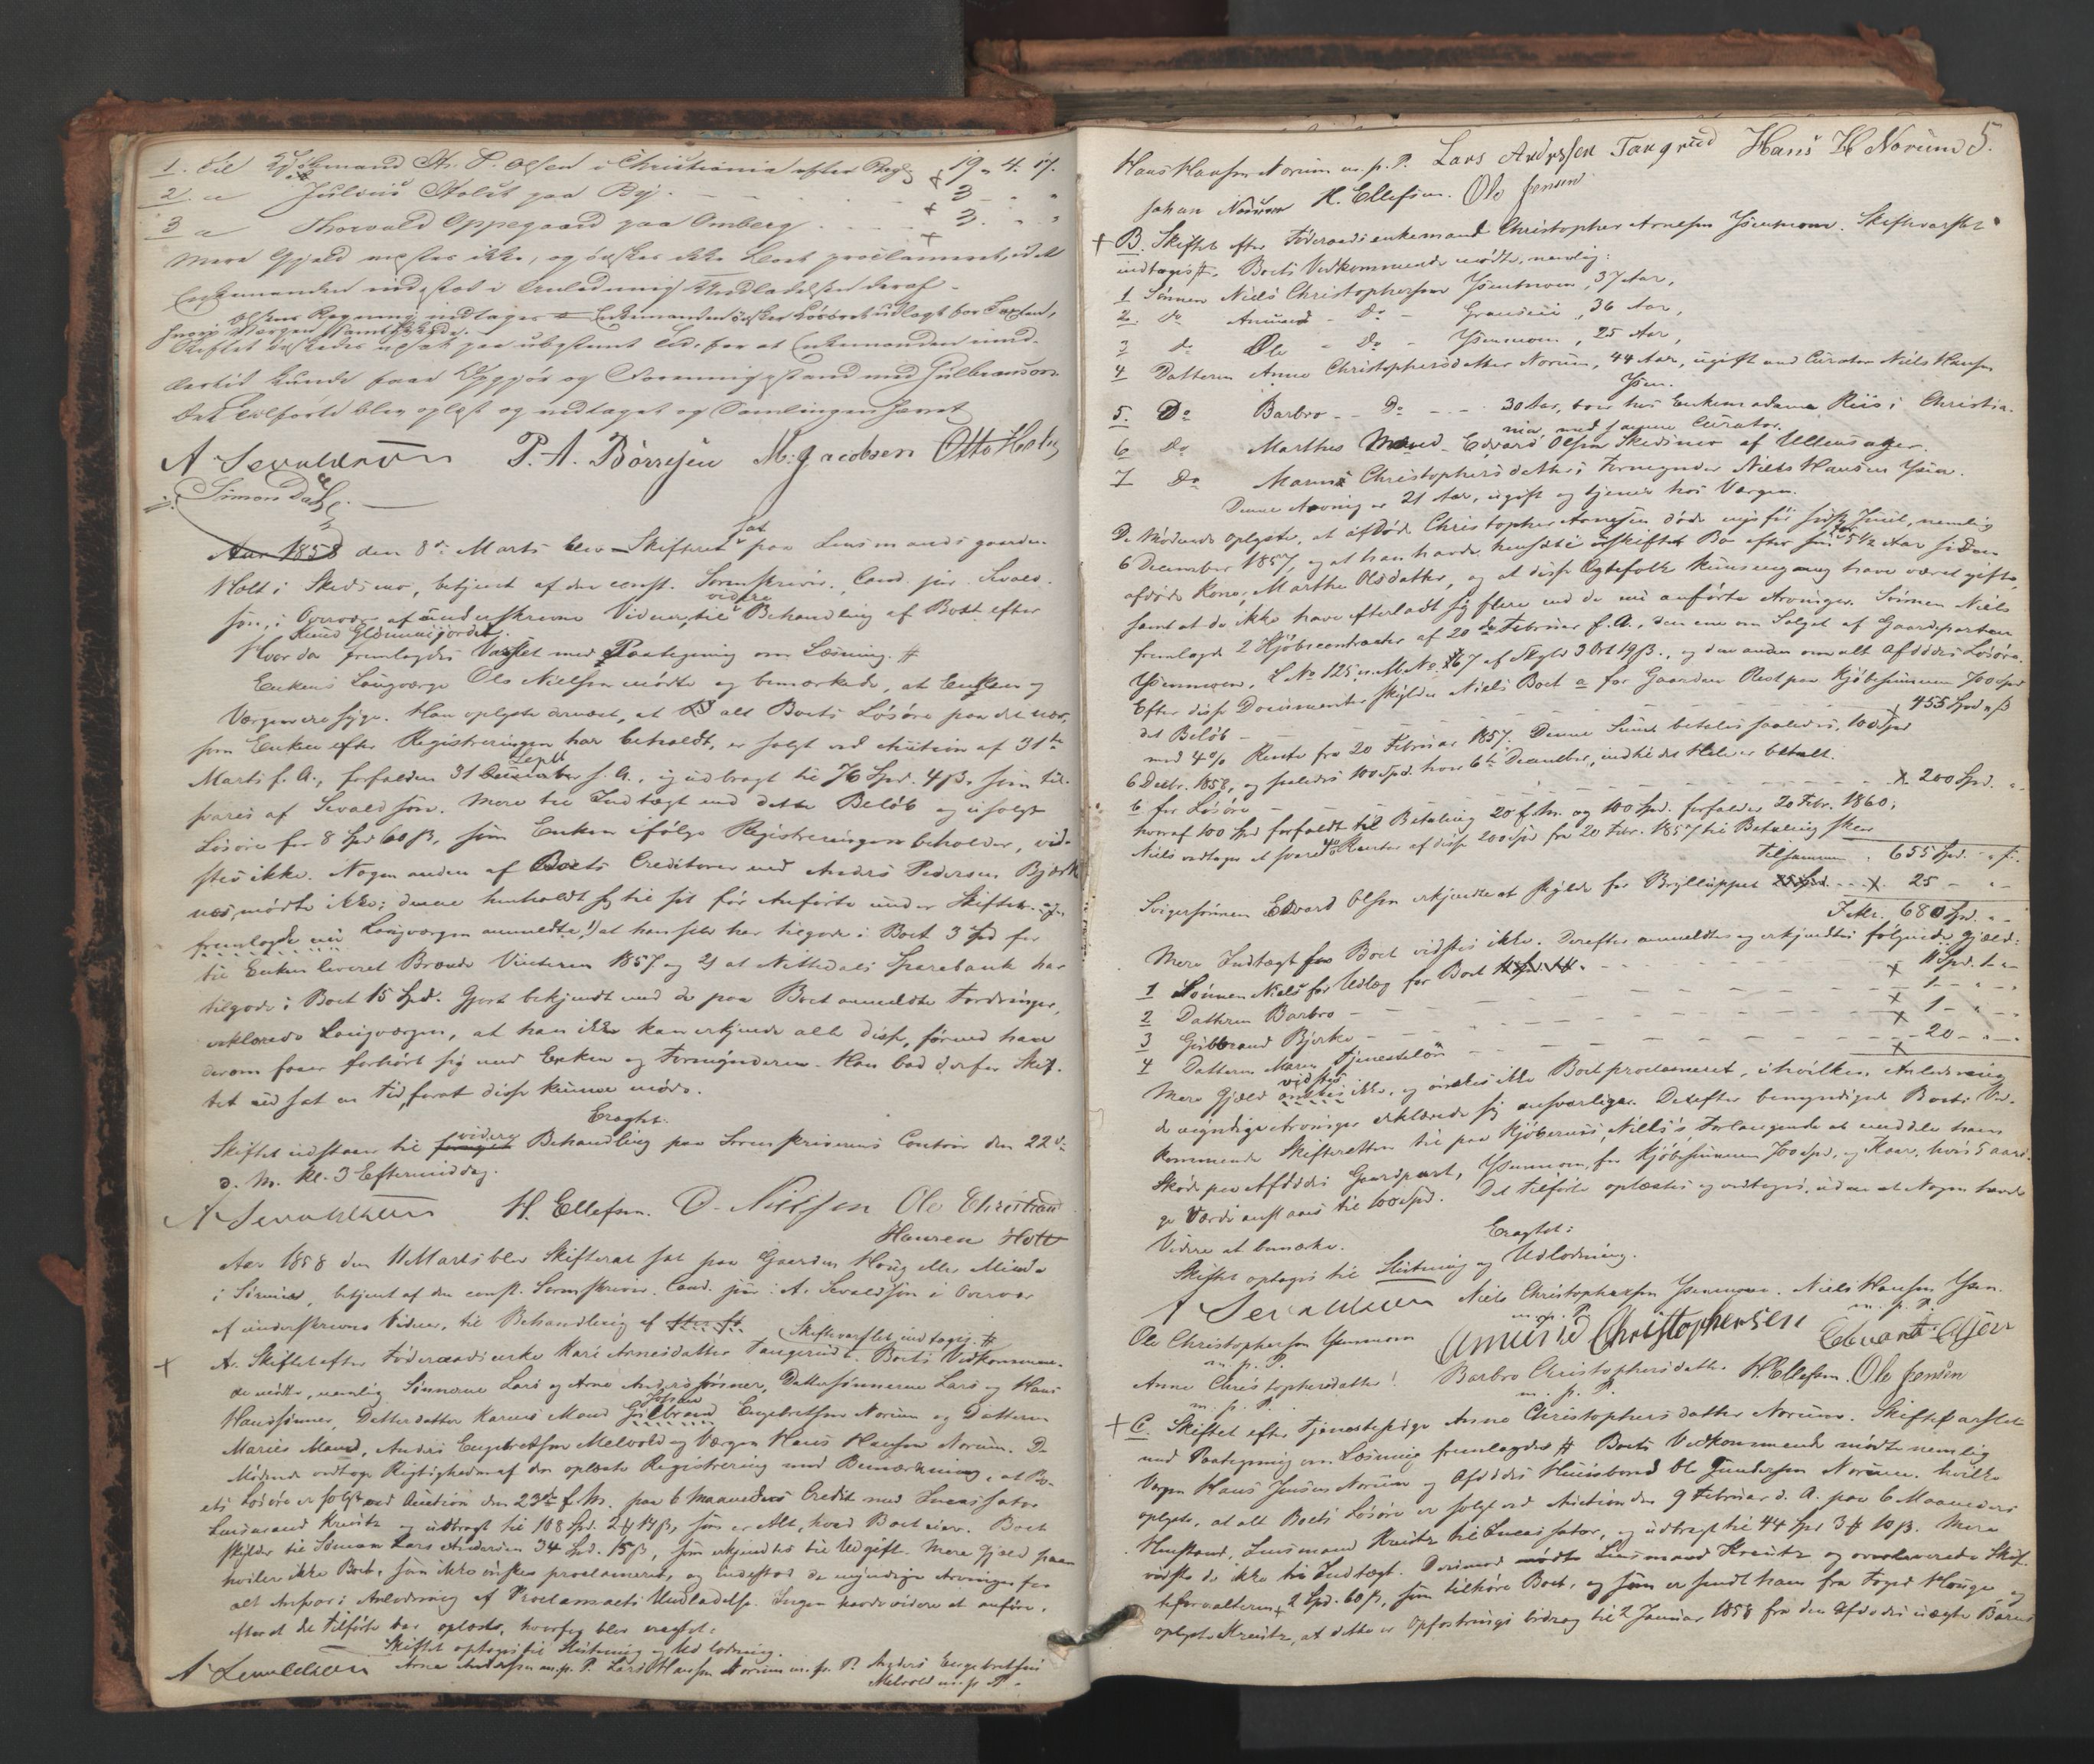 1. Til Kjøbmand A. P. Olsen i Christiania efter Regg 19 „ 4. 17.
2. a Julius Holst paa By. - - 3 - „ „
3 a Thorvald Oppegaard paa Omberg . . . 3. „ „
Mere Gjæld vistes ikke, og ønskes ikke Boet proclameret, idet
Enkemanden indestod i Anledning Undladelsen deraf.
Skiftet udsættes paa ubestemt Tid, for at Enkemanden imid-
lertid kunde faae Opgjør og Foreningsstand med Gulbrandson.
Det Tilførte blev oplæst og vedtaget og Samlingen hævet
A Sevaldson P. A. Børresen M. Jacobsen Otto Holst
Simon Dahl.
Aar 1858 den 8de Marts blev Skifteret sat paa Lensmandsgaarden
Holt i Skedsmo, betjent af den const. Sorenskriver, Cand. jur. Sevald-
son, i Overvær af underskrevne Vidner, til videre Behandling af Boet efter
Knud Glomengjordet.
Hvorda fremlagdes Varslet med Paategning om Læsning. #
Enkens Laugværge Ole Nielsen mødte og bemærkede, at Enken og
Værgen ere syge. Han oplyste dernæst, at alt Boets Løsøre paa det nær,
som Enken efter Registreringen har beholdt, er solgt ved Auction af 31te
Marts f. A., forfalden 31 Septb. s. A., og udbragt til 76 Spd. 4 ß, som til-
svares af Sevaldson. Mere til Indtægt end dette Beløb og usolgt
Løsøre for 8 Spd 60 ß, som Enken ifølge Registreringen beholder, vid-
stes ikke. Nogen anden af Boets Creditorer end Anders Pedersen Bjerk
næs mødte ikke; denne henholdt sig til sit før Anførte under Skiftet.
fremlagde en Laugværgen anmeldte 1) at han selv har tilgode i Boet 3 Spd for
til Enken leveret Brænde Vinteren 1857 og 2) at Nittedals Sparebank har
tilgode i Boet 15 Spd. Gjort bekjendt med de paa Boet anmeldte Fordringer,
erklærede Laugværgen, at han ikke kan erkjende alle disse, førend han
derom faaer forhørt sig med Enken og Formynderen. Han bad derfor Skif-
tet udsat en Tid, forat disse kunne møde.
Eragtet:
Skiftet udstaaer til videre Behandling paa Sorenskriverens Contoir den 22de
d. M. Kl. 3 Eftermiddag.
A Sevaldson H. Ellefsen. O. Nilsen Ole Christian
Hansen Holt
Aar 1858 den 11 Marts blev Skifteret sat paa Gaarden Houg eller Minde
i Sørum, betjent af den const. Sorenskriver, Cand. jur. A. Sevaldson i Overvær
af underskrevne Vidner, til Behandling af
A. Skiftet efter Føderaadsenke Kari Arnesdatter Tangerud. Skiftevarslet indtages. # Boets Vedkommen-
de mødte, nemlig Sønnerne Lars og Arne Anderssønner, Dattersønnerne Lars og Hans
Hanssønner, Datterdatter Karens Mand Johan Engebretsen Norum og Datteren
Maries Mand, Anders Engebretsen Melvold og Værgen Hans Hansen Norum. De
Mødende vedtoge Rigtigheden af den oplæste Registrering med Bemærkning, at Bo-
ets Løsøre er solgt ved Auction den 23de f. M. paa 6 Maaneders Credit med Incassator
Lensmand Kreutz og udbragt til 108 Spd. 2 # 14 ß, som er Alt, hvad Boet eier. Boet
skylder til Sønnen Lars Andersen 34 Spd. 15 ß, som erkjendtes til Udgift. Mere Gjæld paa-
hviler ikke Boet, som ikke ønskes proclameret, og indestod de myndige Arvinger for
alt Ansvar i Anledning af Proclamaets Undladelse. Ingen havde videre at anføre,
efterat det Tilførte var oplæst, hvorfor blev eragtet:
Skiftet optages til Slutning og Udlodning.
A Sevaldson Arne Andersen m. p. P. Lars Hansen Norum m. p. P. Anders Engebretsen
Melvold m. p. P.
5.
Hans Hansen Norum m. p. P. Lars Andersen Tangrud Hans H Norum
Johan Norum H. Ellefsen. Ole Jensen
+ B. Skiftet efter Føderaadsenkemand Christopher Arnesen Ysenmoen. Skiftevarslet
indtages #. Boets Vedkommende mødte, nemlig:
1 Sønnen Niels Christophersen Ysenmoen, 37 Aar,
2. do Amund - Do - 36 Aar,
3 do Ole - Do - Ysenmoen, 25 Aar,
4 Datteren Anne Christophersdatter Norum, 44 Aar, ugift med Curator Niels Hansen
Ysen.
5. Do Barbro - Do - 30 Aar, boer hos Enkemadame Riis i Christia-
nia, med samme Curator.
6 Do Marthes Mand Edvard Olsen Skedsmo af Ullensager.
7 Do Maren Christophersdatters Formynder Niels Hansen Ysen.
Denne Arving er 21 Aar, ugift og tjener hos Værgen.
De Mødende oplyste, at afdøde Christopher Arnesen døde nys før sidste Juul, nemlig
6 December 1857, og at han havde hensiddet i uskiftet Bo efter sin for 5 1/2 Aar siden
afdøde Kone, Marthe Olsdatter, og at disse Ægtefolk kuns engang have været gifte,
samt at de ikke have efterladt sig flere end de nu anførte Arvinger. Sønnen Niels
fremlagde 2 Kjøbecontracter af 20de Februar f. A., den ene om Salget af Gaardeparten
Ysenmoen, L No 125, M. No 167 af Skyld 3 Ort 19 ß., og den anden om alt Afdødes Løsøre.
Efter disse Documenter skylder Niels Boet a for Gaarden Rest paa Kjøbesummen 700 Spd
det Beløb - - - 455 Spd „ ß
med 4% Rente fra 20 Februar 1857. Denne Sum betales saaledes, 100 Spd
6 Decbr. 1858, og saaledes 100 Spd. hver 6te December, indtil det Hele er betalt.
b for Løsøre - - - 200 Spd. „
hvoraf 100 Spd forfaldt til Betaling 20 f. M. og 100 Spd. forfalder 20 Febr. 1860;
Niels vedtager at svare 4% Renter af disse 200 Spd fra 20 Febr. 1857 til Betaling skeer
Tilsammen . 655 Spd. „ ß.
Svigersønnen Edvard Olsen erkjendte at skylde for Brylluppet - 25 - „ -
Ialt. 680 Spd. „ -
Mere Indtægt for Boet vidstes ikke. Derefter anmeldtes og erkjendtes følgende Gjæld:
1 Sønnen Niels for Udlæg for Boet - - - 11 Spd. 1 - „
2 Datteren Barbro - - - 1 - „ -
3 Gulbrand Bjerke - - - 1 - „ -
4 Datteren Maren Tjenesteløn - - - 20 - „ -
Mere Gjæld vidstes ikke, og ønskes ikke Boet proclameret, i hvilken Anledning
de myndige Arvinger erklærede sig ansvarlige. Derefter bemyndigede Boets Ved-
kommende Skifteretten til paa Kjøberens, Niels's, Forlangende at meddele ham
Skjøde paa Afdødes Gaardpart, Ysenmoen, for Kjøbesummen 700 Spd, og Kaar, hvis 5 aari-
ge Værdi ansaaes til 100 Spd. Det Tilførte oplæstes og vedtoges, uden at Nogen havde
Videre at bemærke.
Eragtet:
Skiftet optages til Slutning og Udlodning.
A Sevaldson Niels Christophersen Ysenmoen. Niels Hansen Ysen.
m. p. P. m. p. P.
Ole Christophersen Ysenmoen Amund Christophersen Edvard Olsen
m. p. P.
Anne Christophersdatter Barbro Christophersdatter H. Ellefsen. Ole Jensen
m. p. P. m. p. P.
+ C. Skiftet efter Tjenestepige Anne Christophersdatter Norum. Skiftevarslet
med Paategning om Læsning fremlagdes # Boets Vedkommende mødte nemlig
Værgen Hans Jensen Norum og Afdødes Huusbond Ole Gundersen Norum, hvilke
oplyste, at alt Boets Løsøre er solgt ved Auction den 9 Februar d. A. paa 6 Maaneders
Henstand, Lensmand Kreutz til Incassator, og udbragt til 44 Spd 3 # 10 ß. Mere
vidste de ikke til Indtægt. Derimod mødte Lensmand Kreutz og overleverede Skif-
teforvalteren 2 Spd. 60 ß, som tilhøre Boet, og som er sendt ham fra Foged Houge og
oplyste Kreutz, at dette er Opfostringsbidrag til 2 Januar 1858 fra den Afdødes uægte Barns